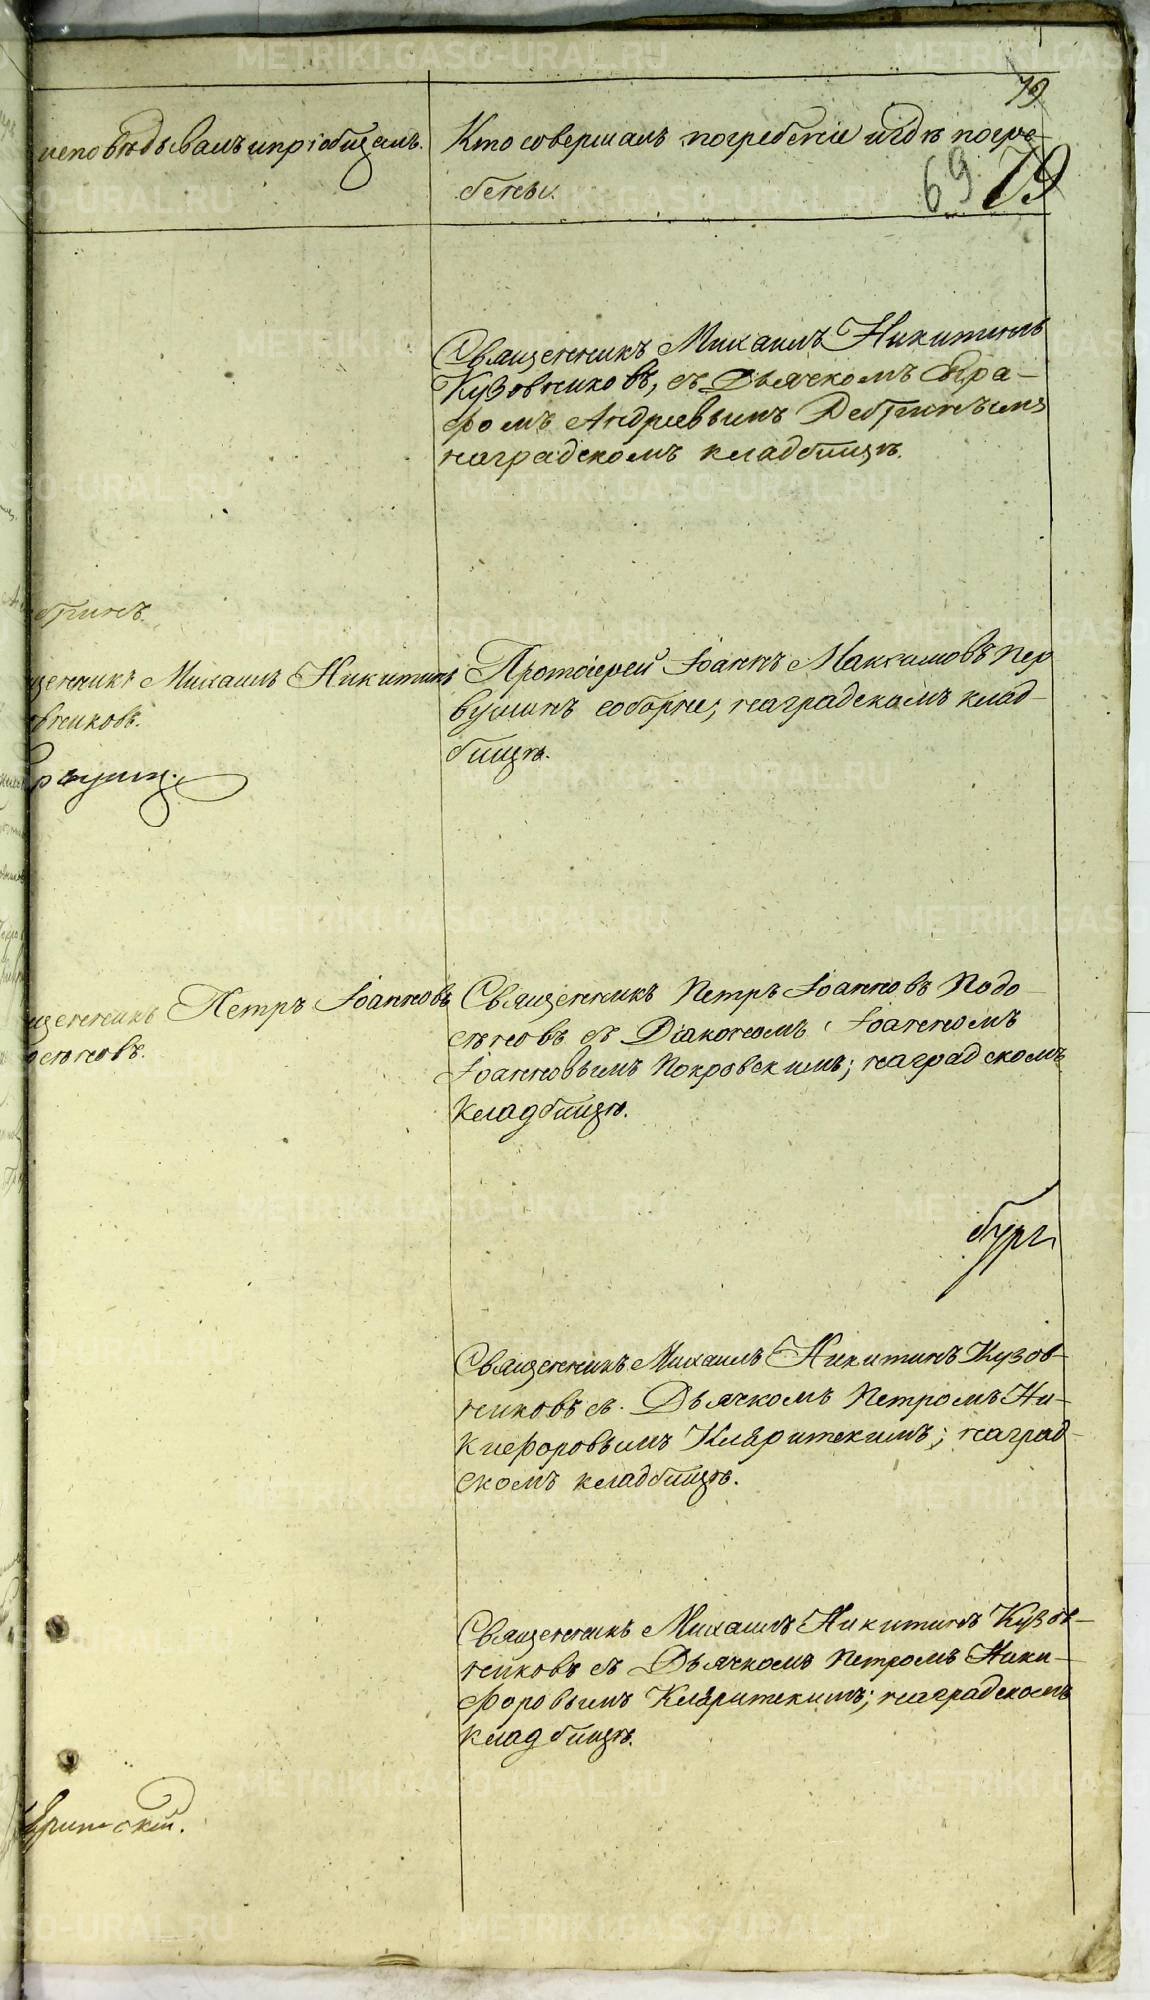 79
исповѣдывалъ и пріобщалъ.
Кто совершалъ погребеніе и гдѣ погре-
бены.
69 79
Священникъ Михаилъ Никитинъ
Кузовниковъ, съ Дьячкомъ Евгра-
фомъ Андреевымъ
на градскомъ кладбищѣ.
щенникъ Михаилъ Никитинъ
овниковъ.
Протоіерей Іоаннъ Максимовъ Пер
вушинъ соборне; на градскомъ клад-
бищѣ.
щенникъ Петръ Іоанновъ
осѣновъ.
Священникъ Петръ Іоанновъ Подо-
сѣновъ съ Діакономъ Іоанномъ
Іоанновымъ Покровскимъ; на градскомъ
кладбищѣ.
бург
Священникъ Михаилъ Никитинъ Кузов-
никовъ съ Дьячкомъ Петромъ Ни-
кифоровымъ на град-
скомъ кладбищѣ.
Священникъ Михаилъ Никитинъ Кузов-
никовъ съ Дьячкомъ Петромъ Ники-
форовымъ на градскомъ
кладбищѣ.
METRIKI.GASO-URAL.RU